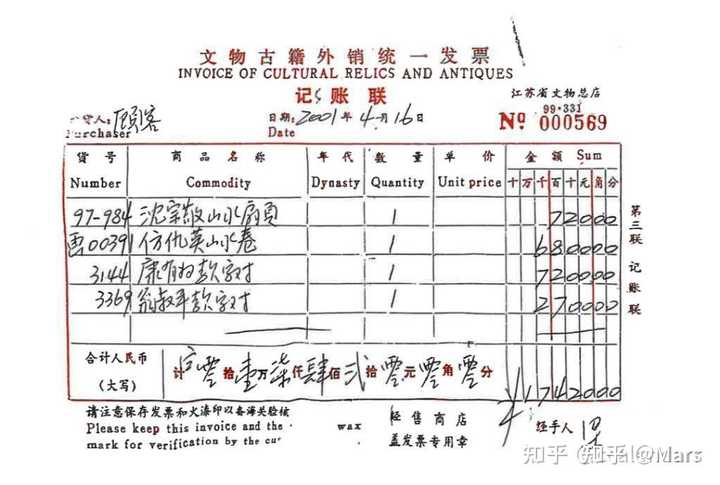 文物古籍外销统一发票
INVOICE OF CULTURAL RELICS AND ANTIQUES
记账联
江苏省文物总店
99·331
货人: 顾客
Purchaser
日期: 2001年4月16日
Date
No 000569
货号 商品名称 年代 数量 单价 金额 Sum
Number Commodity Dynasty Quantity Unit price 十万千百十元角分
97-984 沈宗敬山水扇页 1 72000
画00391 仿仇英山水卷 1 680000
3144 康有为款字对 1 720000
3369 翁叔平款字对 1 270000
第三联 记账联
合计人民币
(大写)
计零拾壹万柒仟肆佰贰拾零元零角零分
1742000
请注意保存发票和火漆印以备海关验核
Please keep this invoice and the wax
mark for verification by the cu
经售商店
盖发票专用章
经手人
知乎 @Mars